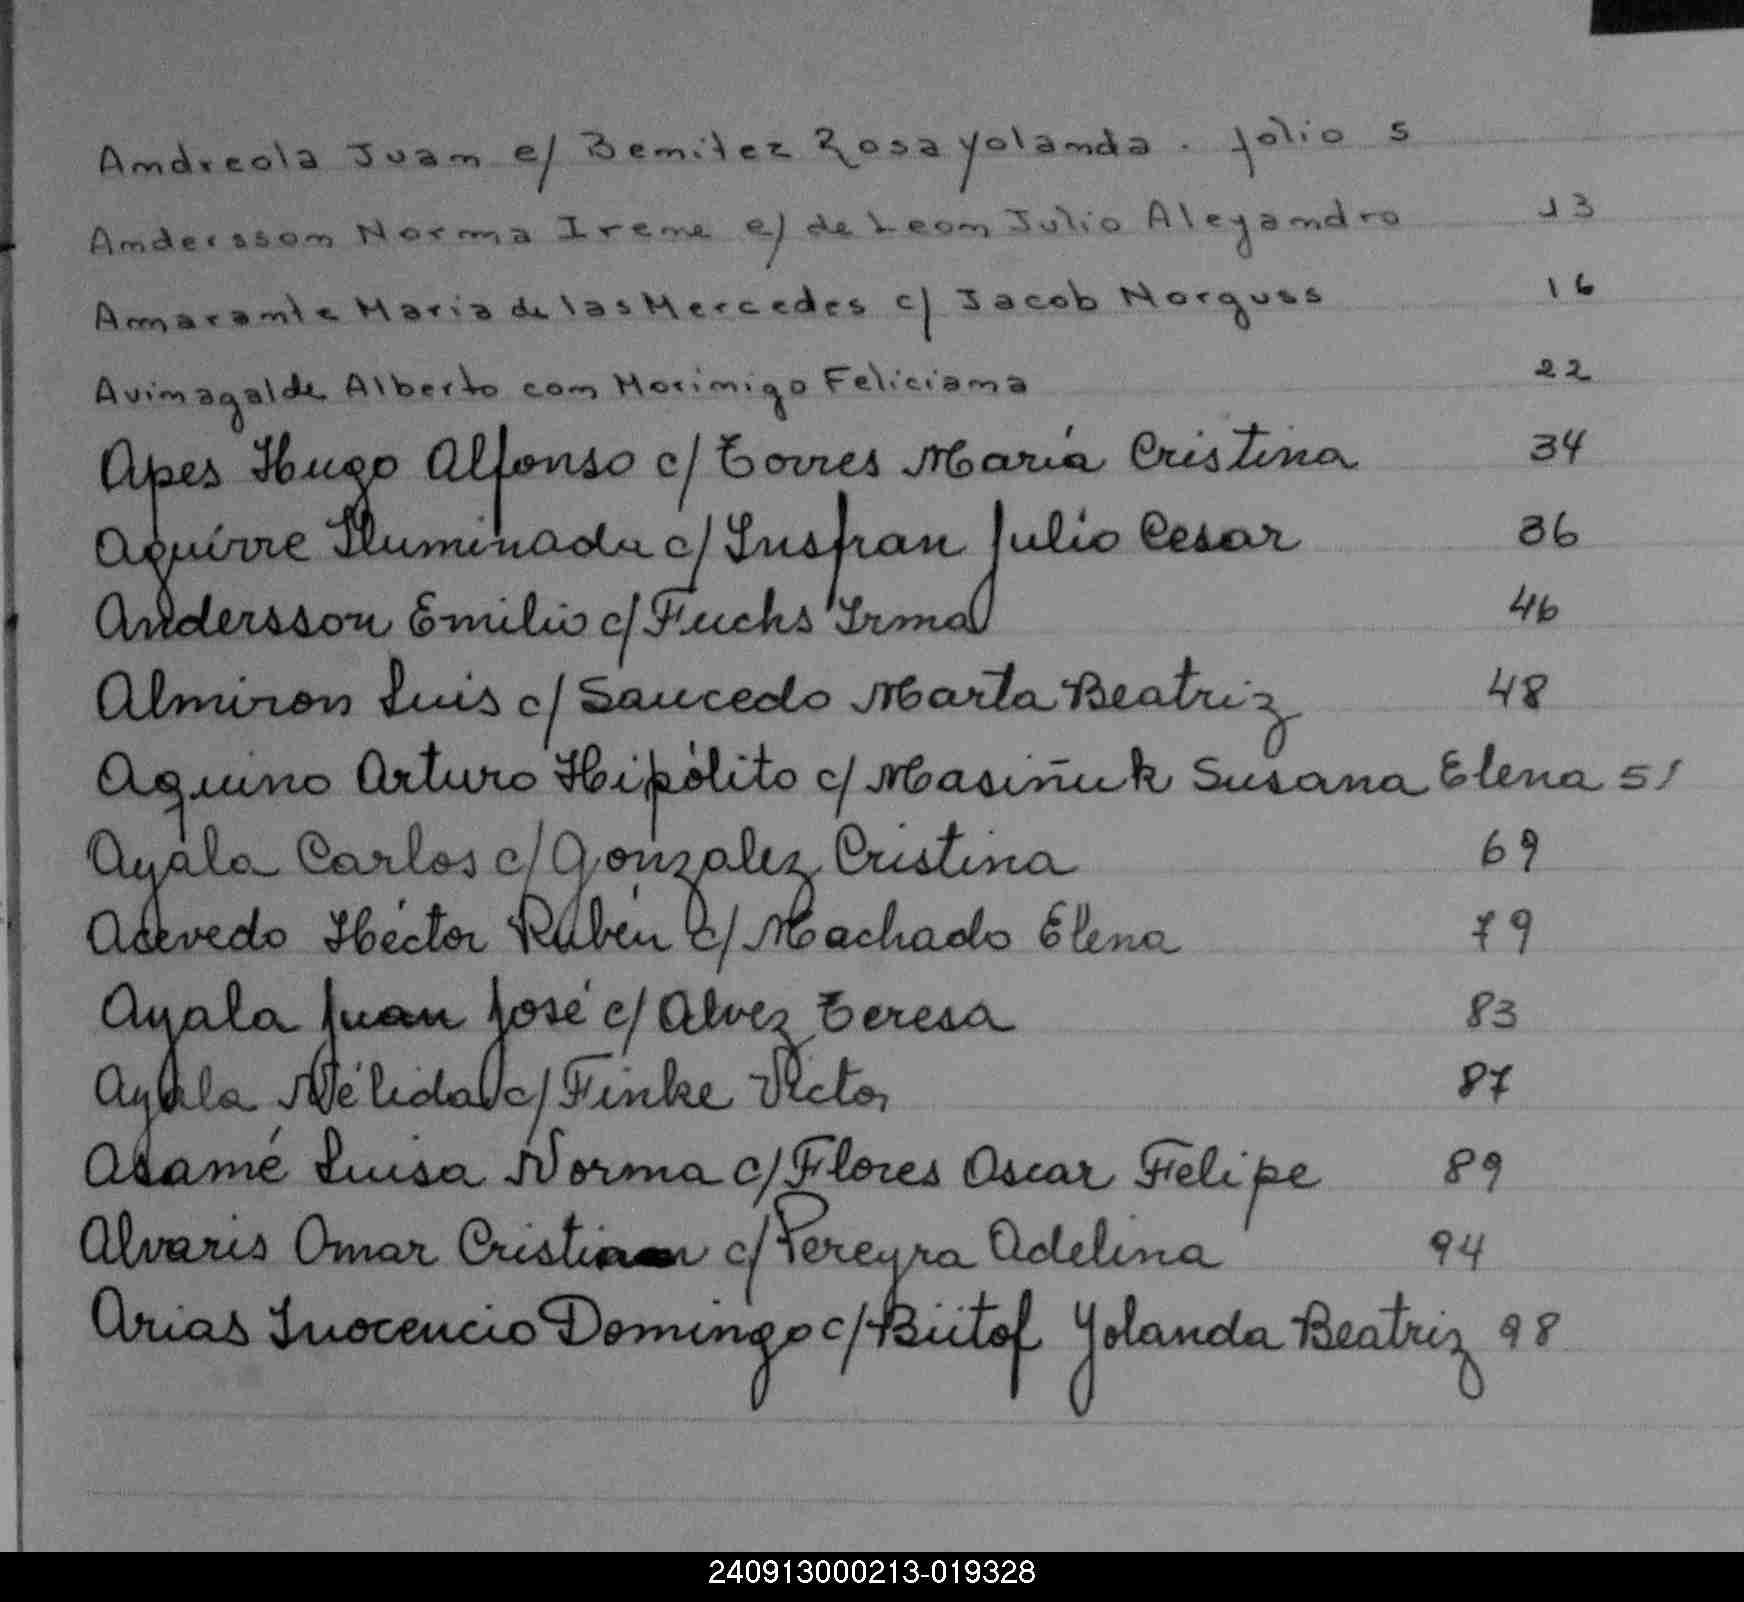 Andreola Juan c/ Benitez Rosa Yolanda . folio 5
Andersson Norma Irene c/ de Leon Julio Aleyandro 13
Amarante Maria de las Mercedes c/ Jacob Norguss 16
Avinagalde Alberto con Morinigo Feliciana 22
Apes Hugo Alfonso c/ Torres María Cristina 34
Aguirre Iluminada c/ Insfran Julio Cesar 36
Andersson Emilio c/ Fuchs Irma 46
Almiron Luis c/ Saucedo Marta Beatriz 48
Aquino Arturo Hipólito c/ Masiñuk Susana Elena 51
Ayala Carlos c/ Gonzalez Cristina 69
Acevedo Héctor Rubén c/ Machado Elena 79
Ayala Juan José c/ Alvez Teresa 83
Ayala Nélida c/ Finke Victor 87
Asamé Luisa Norma c/ Flores Oscar Felipe 89
Alvaris Omar Cristian c/ Pereyra Adelina 94
Arias Inocencio Domingo c/ Bütof Yolanda Beatriz 98
240913000213-019328